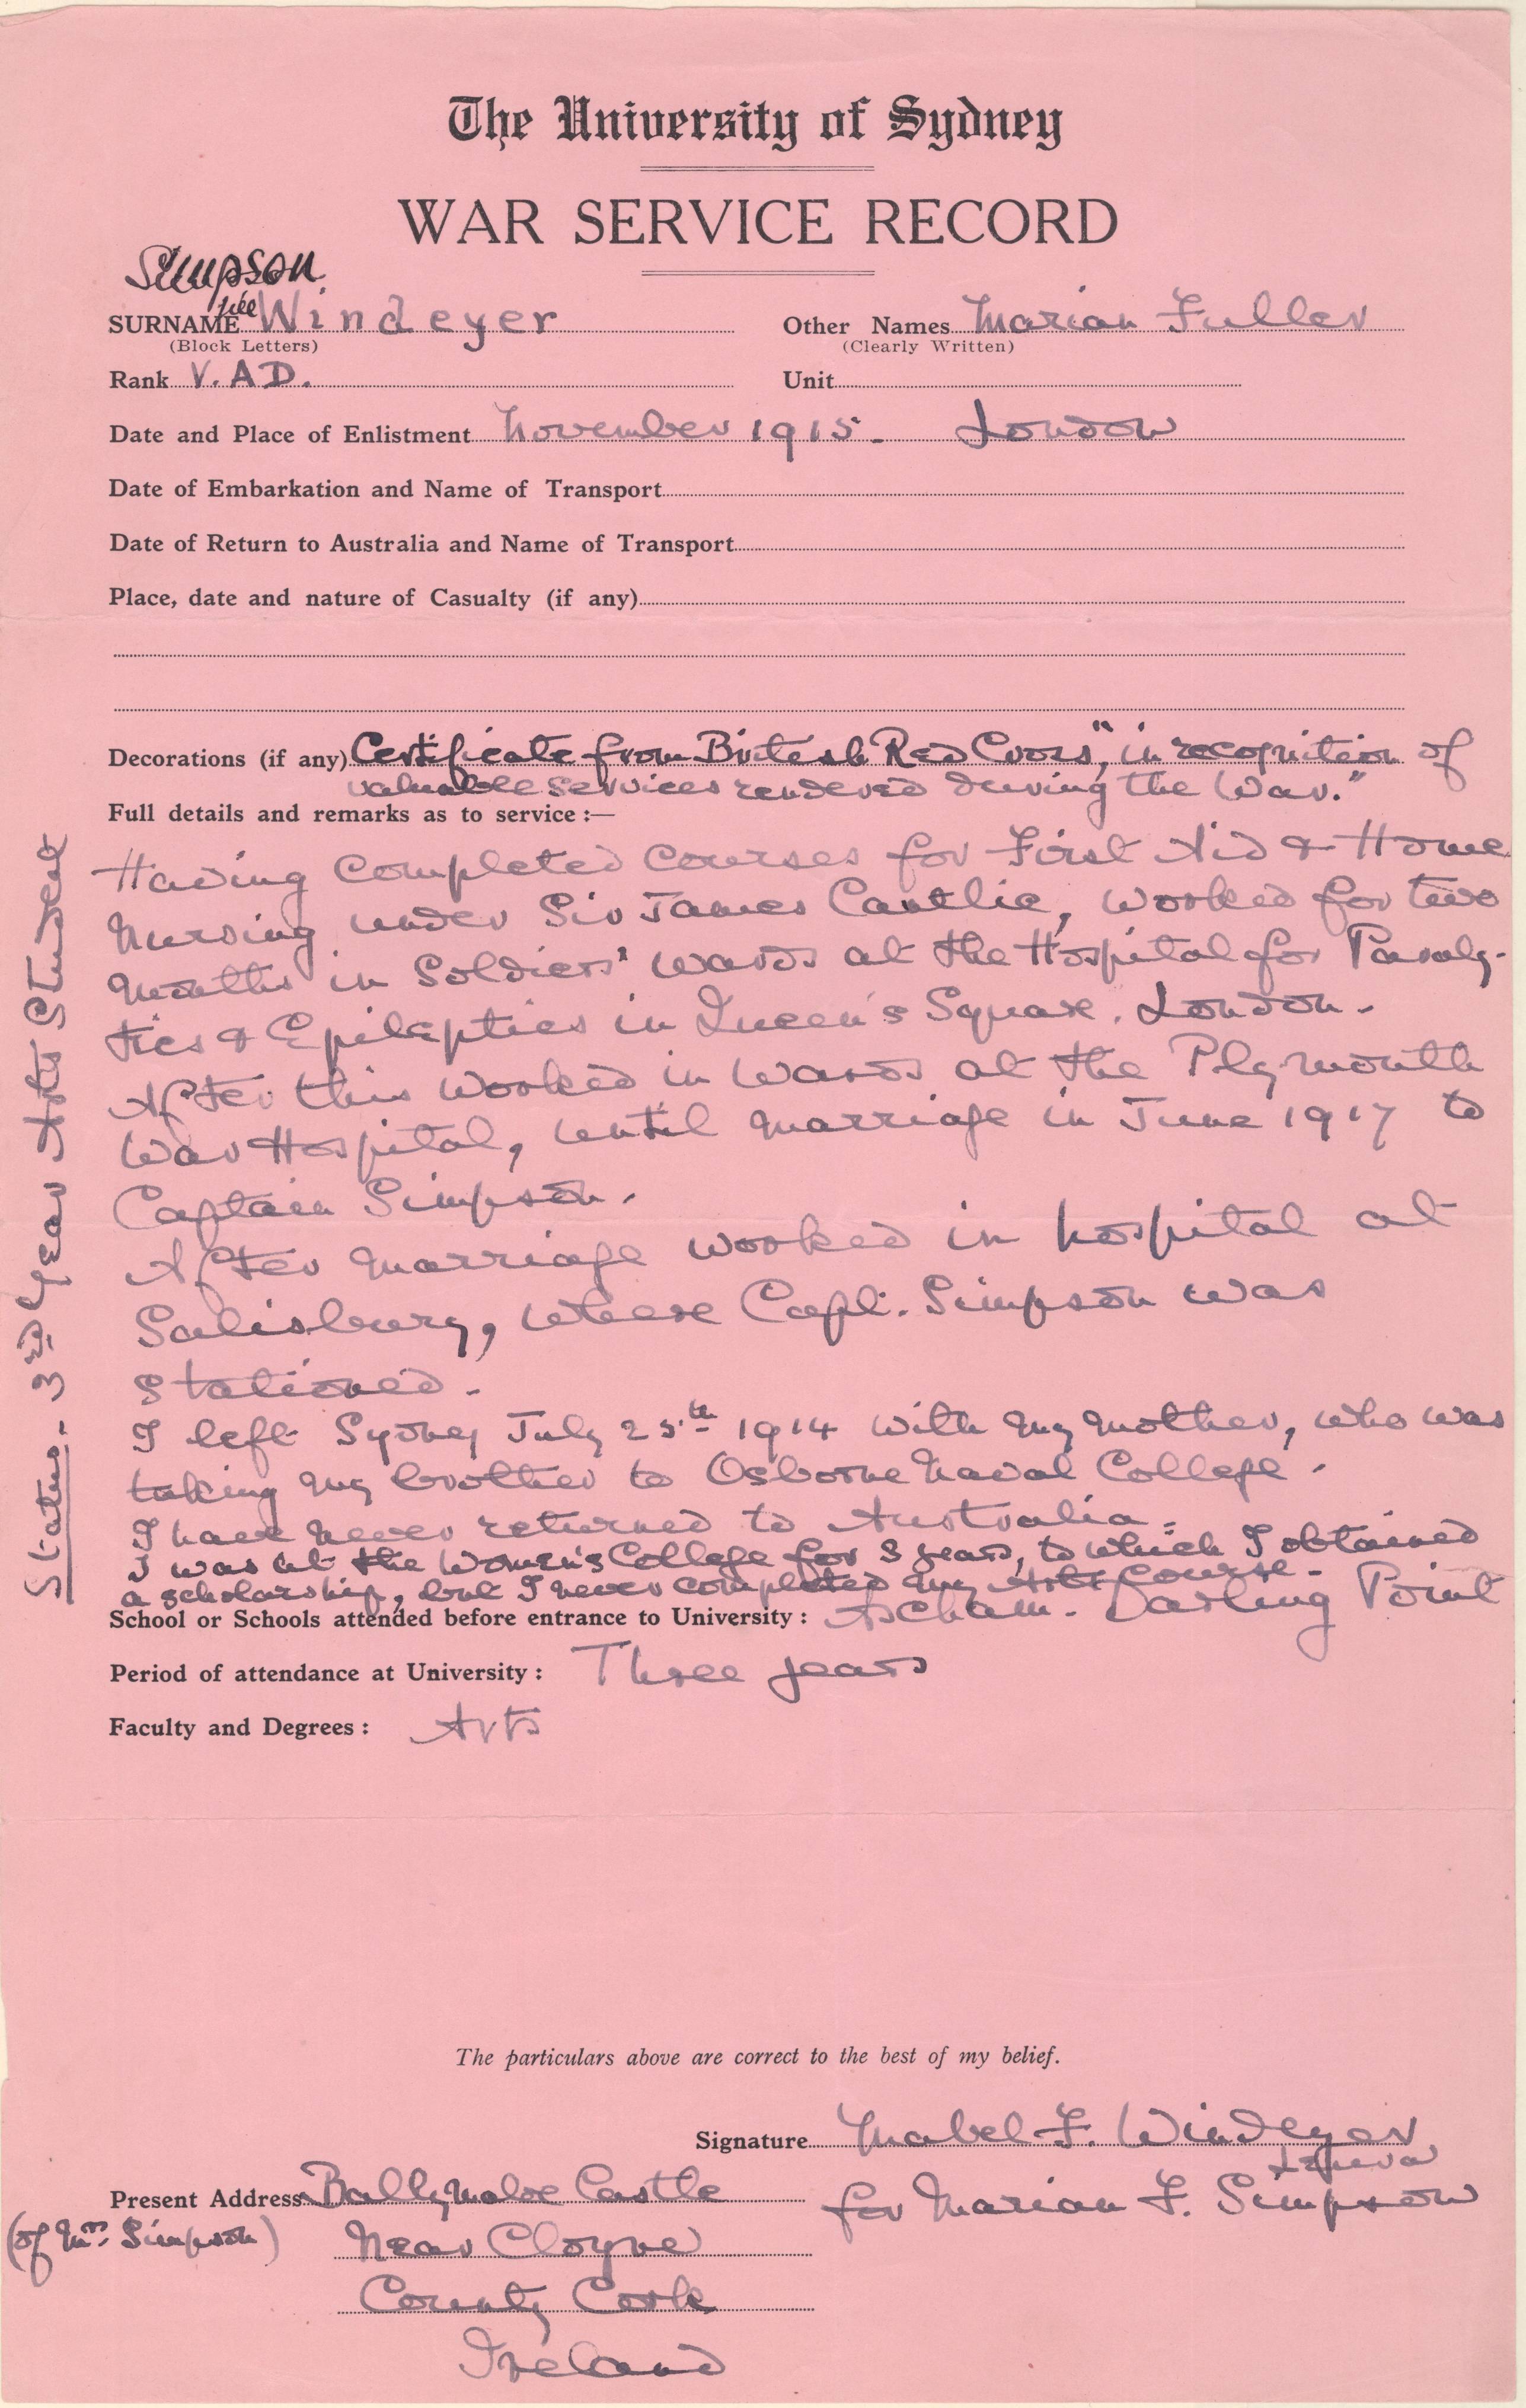 The University of Sydney
WAR SERVICE RECORD
Simpson
SURNAME née Windeyer Other Names Marian Fuller
(Block Letters) (Clearly Written)
Rank V.A.D. Unit
Date and Place of Enlistment November 1915. London
Date of Embarkation and Name of Transport
Date of Return to Australia and Name of Transport
Place, date and nature of Casualty (if any)
Decorations (if any) Certificate from British Red Cross, "in recognition of
valuable services rendered during the War."
Full details and remarks as to service :—
Having completed courses for First Aid & Home
Nursing under Sir James Cantlie, worked for two
months in Soldiers' wards at the Hospital for Paraly-
tics & Epileptics in Queen's Square, London.
After this worked in wards at the Plymouth
War Hospital, until marriage in June 1917 to
Captain Simpson.
After marriage worked in hospital at
Salisbury, where Capt. Simpson was
stationed.
I left Sydney July 25th 1914 with my mother, who was
taking my brother to Osborne Naval College.
I have never returned to Australia.
I was at the Women's College for 3 years, to which I obtained
a scholarship, but I never completed my Arts Course.
School or Schools attended before entrance to University : Ascham. Darling Point
Period of attendance at University : Three years
Faculty and Degrees : Arts
Status. 3rd Year Arts Student
The particulars above are correct to the best of my belief.
Signature Mabel F. Windeyer
for Marian F. Simpson
Present Address Ballymaloe Castle
(of Mrs. Simpson) Near Cloyne
County Cork
Ireland